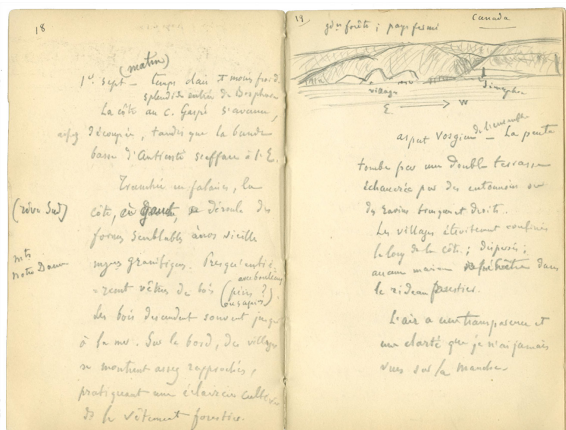 18
(matin)
1er sept – temps clair et moins froid.
splendide entrée de
La côte au C. Gaspé s'avance,
découpée, tandis que la bande
basse d'Anticosti s'efface à l'E.
Tranchée en falaises, la
(rive Sud)
côte, se déroule des
formes semblables à nos vieilles
mts
Notre Dame
granitiques. Presqu'entiè-
rement vêtus de bois (pins ?)
les bois descendent souvent jusqu'
à la mer. Sur le bord, des villages
se montrent assez rapprochés,
pratiquant une éclaircie
de la vêtement forestier.
19
Canada
gdes forêts ; pays fermé
village
E. → W
aspect Vosgien de l'ensemble – La pente
tombe par une double terrasse
échancrée par des entonnoirs ou
des ravins
Les villages étroitement confinés
le long de la côte ; dispersés ;
aucune maison dans
le rideau forestier.
L'air a une transparence et
une clarté que je n'ai jamais
vues sur la Manche.